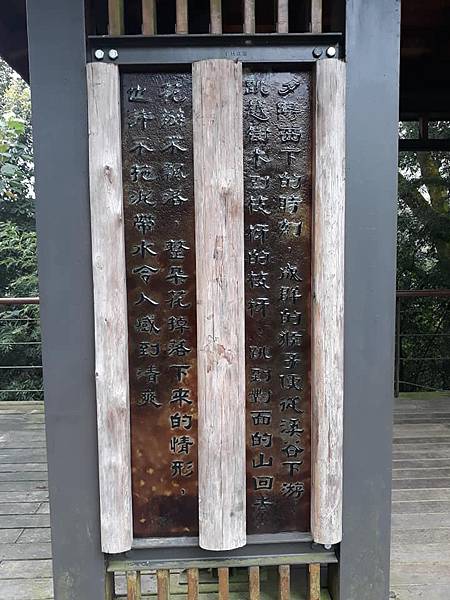 夕陽西下的時刻，成群的猴子便從溪谷下游
跳越樹木到枝枒的枝枒，跳到對面的山回去
花瓣不飄落，整朵花掉落下來的情形，
也許不拖泥帶水令人感到清爽